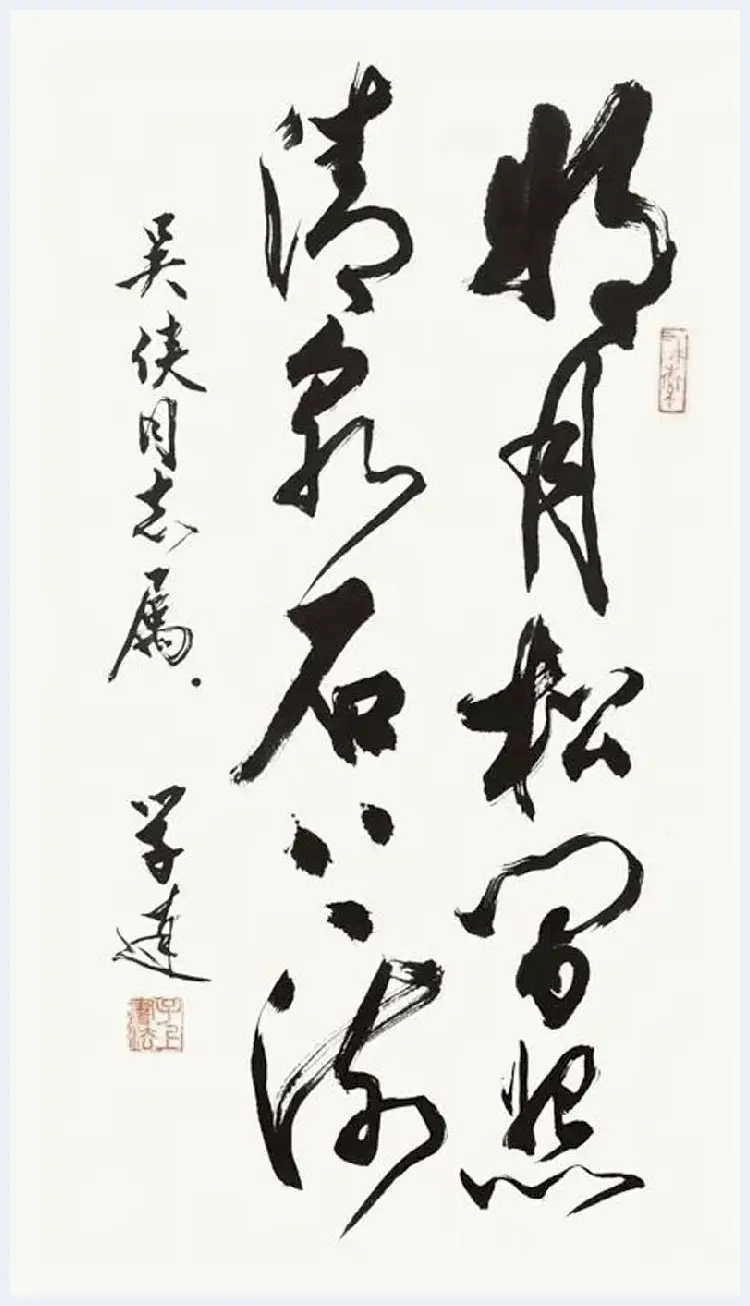 明月松间照
清泉石上流
吴侠同志属 学达